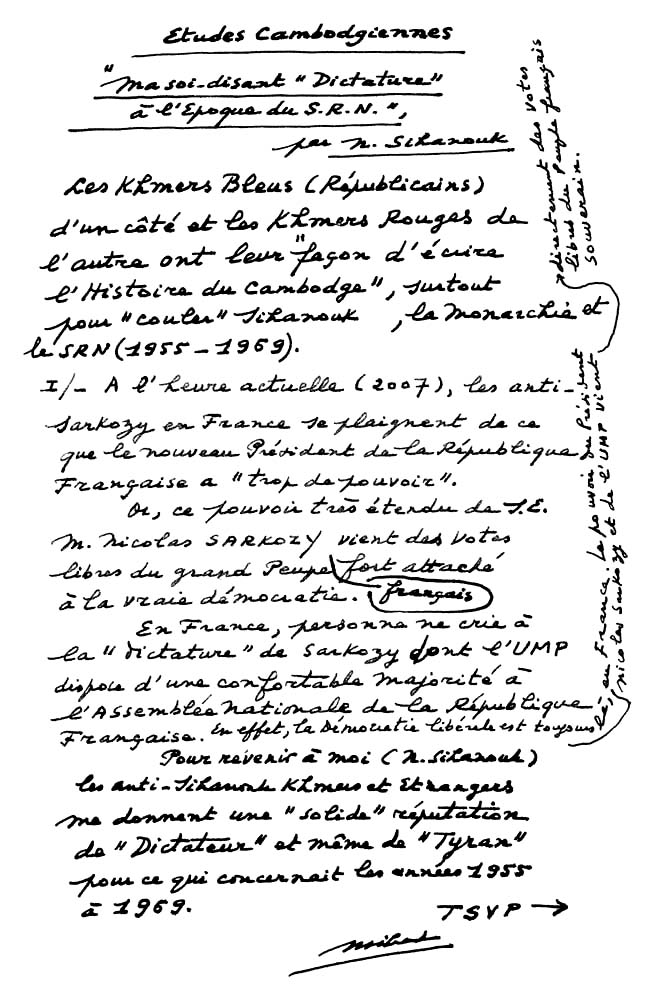 Etudes Cambodgiennes
"Ma soi-disant "Dictature"
à l'Epoque du S.R.N.",
par N. Sihanouk
Les Khmers Bleus (Républicains)
d'un côté et les Khmers Rouges de
l'autre ont leur "façon d'écrire
l'Histoire du Cambodge", surtout
pour "couler" Sihanouk , la Monarchie et
le SRN (1955-1969).
I/- A l'heure actuelle (2007), les anti-
Sarkozy en France se plaignent de ce
que le nouveau Président de la République
Française a "trop de pouvoir".
Or, ce pouvoir très étendu de S.E.
M. Nicolas SARKOZY vient des Votes
libres du grand Peupe français fort attaché
à la vraie démocratie.
En France, personne ne crie à
la "dictature" de Sarkozy dont l'UMP
dispose d'une confortable majorité à
l'Assemblée Nationale de la République
Française. En effet, la Démocratie libérale est toujours
là, en France. Le pouvoir du Président
Nicolas Sarkozy et de l'UMP vient
directement des votes
libres du Peuple français
souverain.
Pour revenir à moi (N. Sihanouk)
les anti-Sihanouk Khmers et Etrangers
me donnent une "solide" réputation
de "Dictateur" et même de "Tyran"
pour ce qui concernait les années 1955
à 1969.
TSVP →